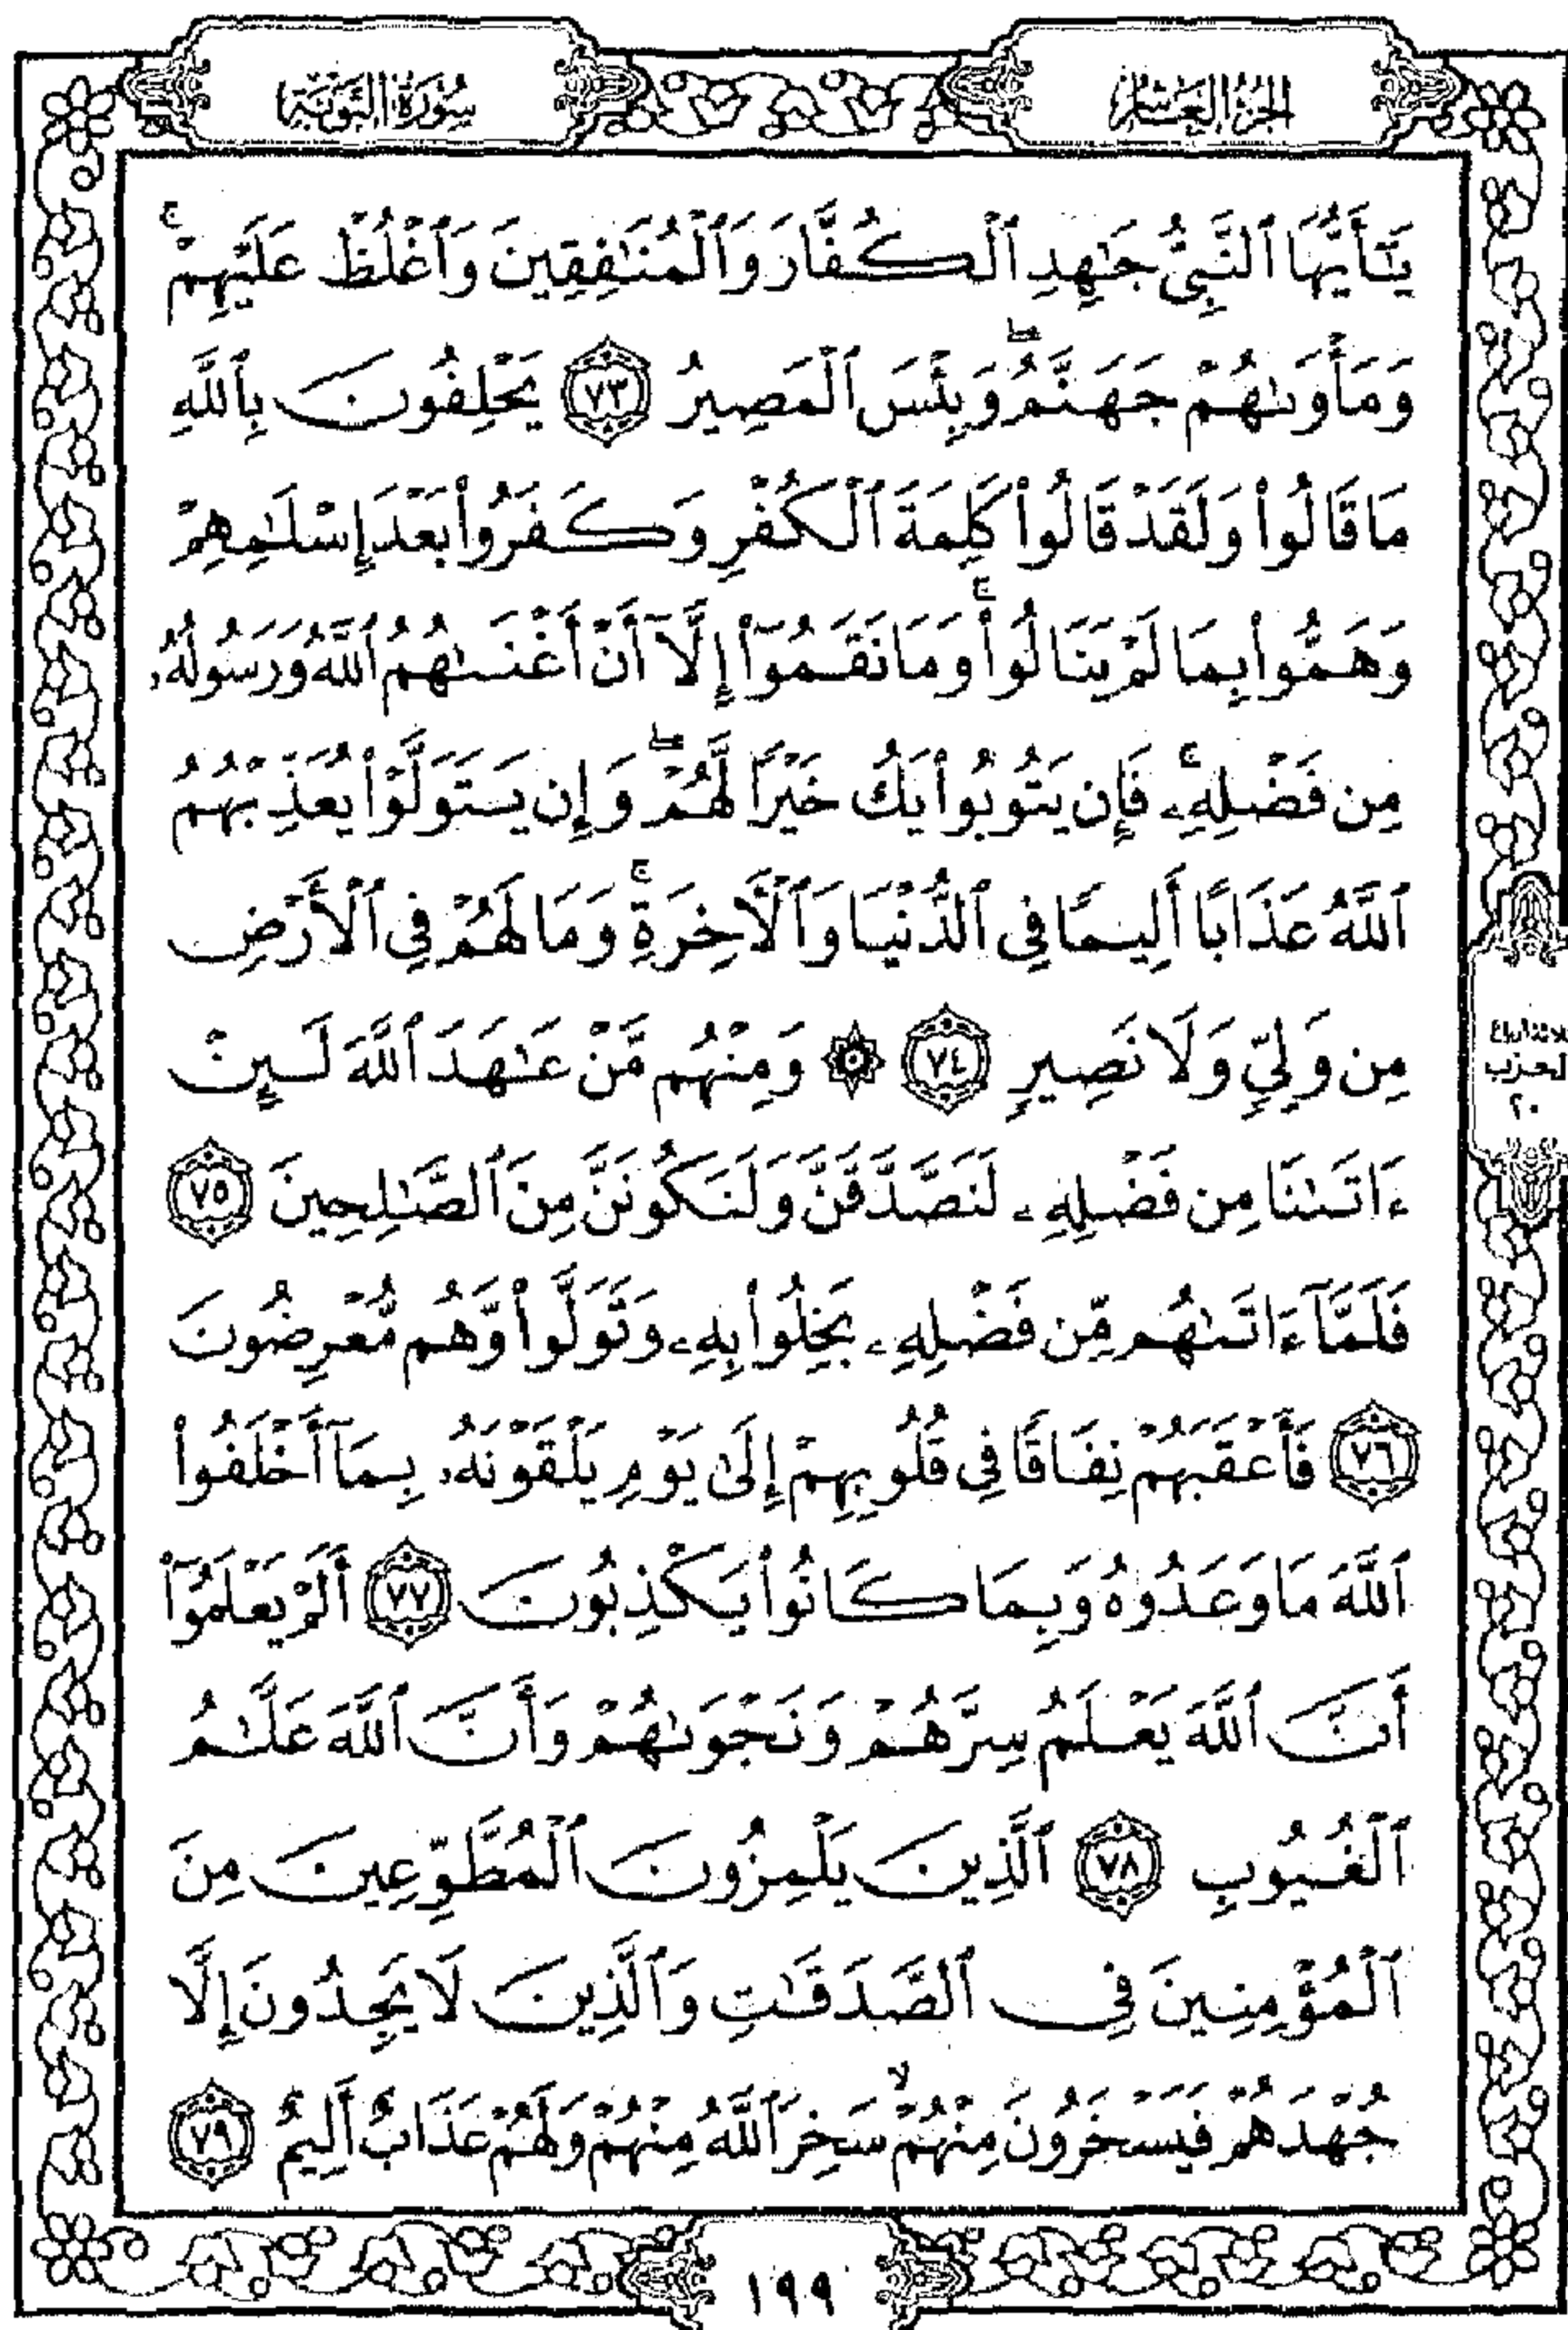 الجزء العاشر
سورة التوبة
يَٰٓأَيُّهَا ٱلنَّبِىُّ جَٰهِدِ ٱلْكُفَّارَ وَٱلْمُنَٰفِقِينَ وَٱغْلُظْ عَلَيْهِمْ ۚ
وَمَأْوَىٰهُمْ جَهَنَّمُ ۖ وَبِئْسَ ٱلْمَصِيرُ ٧٣ يَحْلِفُونَ بِٱللَّهِ
مَا قَالُوا۟ وَلَقَدْ قَالُوا۟ كَلِمَةَ ٱلْكُفْرِ وَكَفَرُوا۟ بَعْدَ إِسْلَٰمِهِمْ
وَهَمُّوا۟ بِمَا لَمْ يَنَالُوا۟ ۚ وَمَا نَقَمُوٓا۟ إِلَّآ أَنْ أَغْنَىٰهُمُ ٱللَّهُ وَرَسُولُهُۥ
مِن فَضْلِهِۦ ۚ فَإِن يَتُوبُوا۟ يَكُ خَيْرًا لَّهُمْ ۖ وَإِن يَتَوَلَّوْا۟ يُعَذِّبْهُمُ
ٱللَّهُ عَذَابًا أَلِيمًا فِى ٱلدُّنْيَا وَٱلْءَاخِرَةِ ۚ وَمَا لَهُمْ فِى ٱلْأَرْضِ
مِن وَلِىٍّ وَلَا نَصِيرٍ ٧٤ ۞ وَمِنْهُم مَّنْ عَٰهَدَ ٱللَّهَ لَئِنْ
ءَاتَىٰنَا مِن فَضْلِهِۦ لَنَصَّدَّقَنَّ وَلَنَكُونَنَّ مِنَ ٱلصَّٰلِحِينَ ٧٥
فَلَمَّآ ءَاتَىٰهُم مِّن فَضْلِهِۦ بَخِلُوا۟ بِهِۦ وَتَوَلَّوا۟ وَّهُم مُّعْرِضُونَ
٧٦ فَأَعْقَبَهُمْ نِفَاقًا فِى قُلُوبِهِمْ إِلَىٰ يَوْمِ يَلْقَوْنَهُۥ بِمَآ أَخْلَفُوا۟
ٱللَّهَ مَا وَعَدُوهُ وَبِمَا كَانُوا۟ يَكْذِبُونَ ٧٧ أَلَمْ يَعْلَمُوٓا۟
أَنَّ ٱللَّهَ يَعْلَمُ سِرَّهُمْ وَنَجْوَىٰهُمْ وَأَنَّ ٱللَّهَ عَلَّٰمُ
ٱلْغُيُوبِ ٧٨ ٱلَّذِينَ يَلْمِزُونَ ٱلْمُطَّوِّعِينَ مِنَ
ٱلْمُؤْمِنِينَ فِى ٱلصَّدَقَٰتِ وَٱلَّذِينَ لَا يَجِدُونَ إِلَّا
جُهْدَهُمْ فَيَسْخَرُونَ مِنْهُمْ ۙ سَخِرَ ٱللَّهُ مِنْهُمْ وَلَهُمْ عَذَابٌ أَلِيمٌ ٧٩
الحزب
٢٠
١٩٩